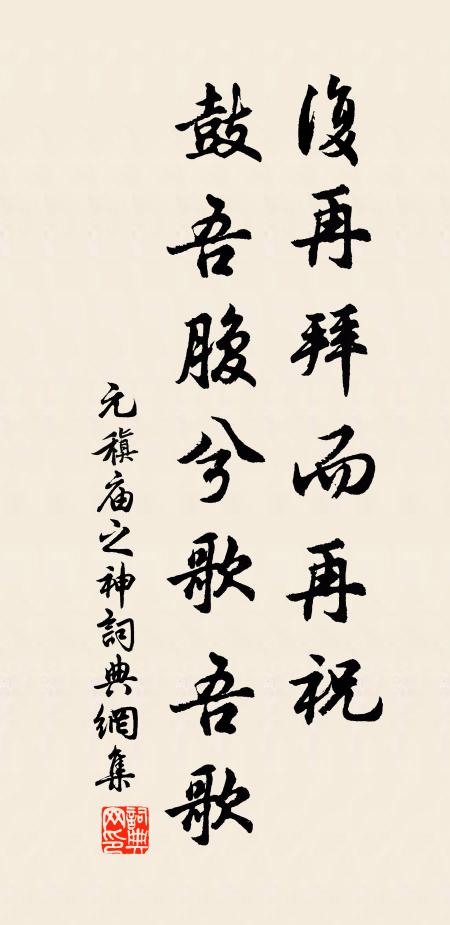 復再拜而再祝
鼓吾腹兮歌吾歌
元稹庙之神詞典網集
詞典網印